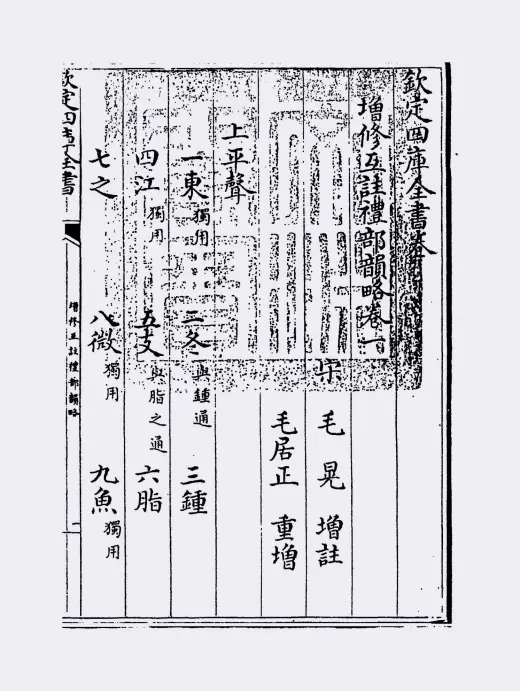 欽定四庫全書
增修互註禮部韻略卷一
宋 毛晃 增註
毛居正 重增
上平聲
一東獨用 二冬與鍾通 三鍾
四江獨用 五支與脂之通 六脂
七之 八微獨用 九魚獨用
欽定四庫全書
增修互註禮部韻略
一